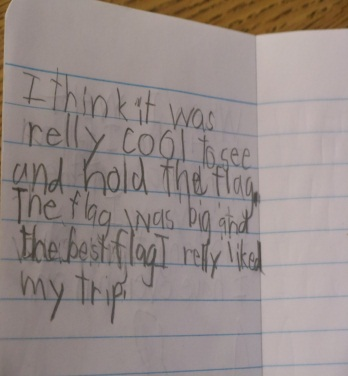 I think it was
relly cool to see
and hold the flag.
The flag was big and
the best flag I relly liked
my trip.